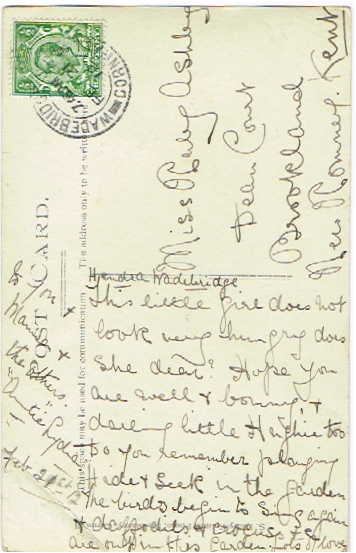 POST CARD.
The address only to be written
This space may be used for communication
WADEBRIDGE
CORN
Miss Ruby Ashby
Dean Court
Brookland
New Romney. Kent
Hendra Wadebridge
This little girl does not
look very hungry does
she dear? Hope you
are well & bonny, &
darling little Hughie too
Do you remember playing
Hide & Seek in the garden
The birds begin to sing again
& snowdrops & crocuses
are out in this garden. Lots of love
to you &
Mamie &
the others.
"Auntie Lydia"
Feb.